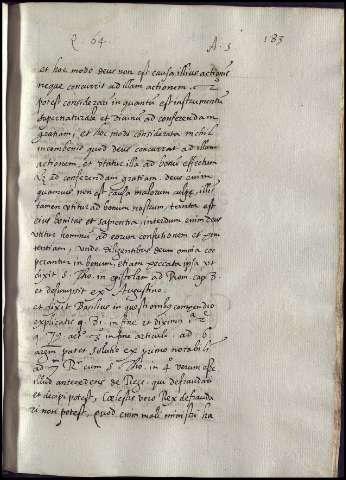 Q. 64. A. 5 183
et hoc modo deus non est causa illius actionis
neque concurrit ad illam actionem. 2
potest considerari in quantum est instrumentum
supernaturale et divinum ad conferendam
gratiam, et hoc modo considerata nihil
incombenis quod deus concurrat ad illam
actionem et utatur illa ad bonum effectum
ad conferendam gratiam. deus enim
quamvis non est causa malorum culpe, illis
tamen utitur ad bonum nostrum, tanta est
eius bonitas et sapientia, interdum enim deus
utitur hominum ad eorum confusionem et peni
tentiam, unde diligentibus deum omnia coo
perantur in bonum, etiam peccata ipsa ut
dixit S. Tho. in epistolam ad Rom. cap. 8
et desumpsit ex Augustino.
et dixit Basilius in questionibus compendio
explicatis q. in fine et diximus 1ª 2ę
q. 79 art. in fine articuli. ad 6
argm patet solutio ex primo notabili
ad 7 Rr cum S. Tho. in 4º verum esse
illud antecedens de Rege, qui defraudari
et decipi potest, Cœlestis vero Rex defrauda
ri non potest, quod enim mali ministri